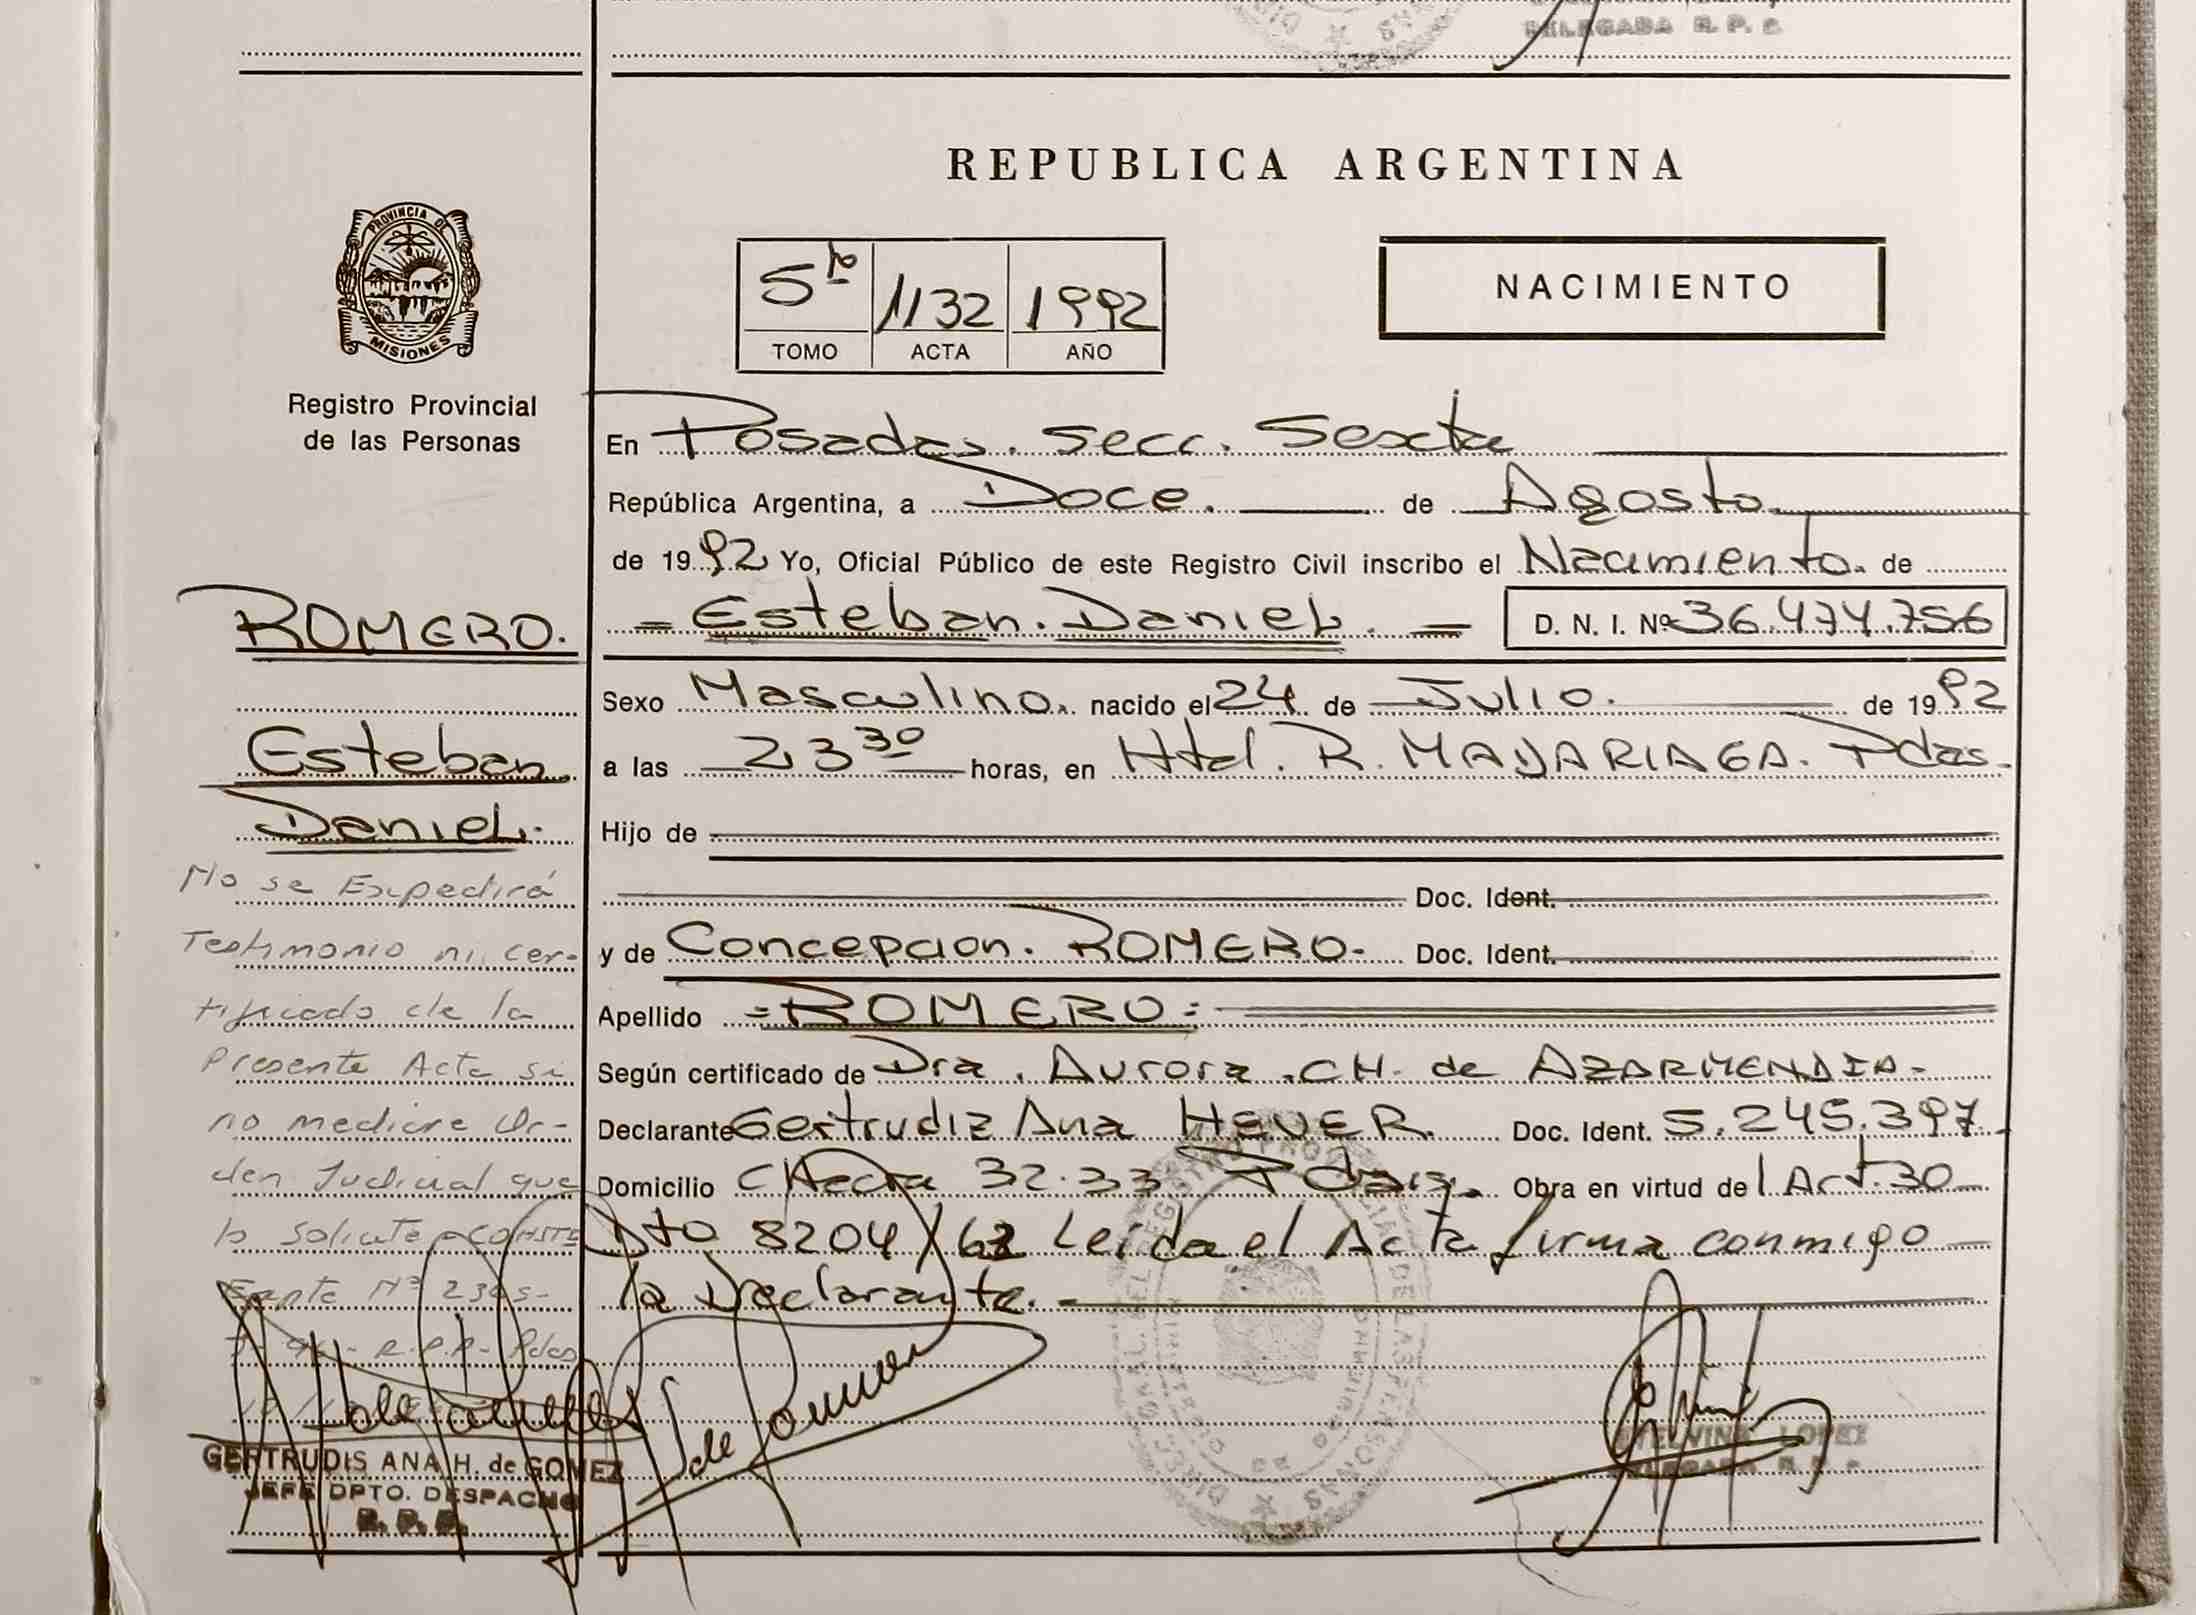 DELEGADA R. P. P.
REPUBLICA ARGENTINA
PROVINCIA DE
MISIONES
Registro Provincial
de las Personas
5to 1132 1992
TOMO ACTA AÑO
NACIMIENTO
En Posadas. Secc. Sexta
República Argentina, a Doce. de Agosto.
de 1992 Yo, Oficial Público de este Registro Civil inscribo el Nacimiento. de
ROMERO.
Esteban
Daniel.
= Esteban. Daniel. = D. N. I. Nº 36.474.756
Sexo Masculino. nacido el 24 de Julio. de 1992
a las 23 30 horas, en Htal. R. MADARIAGA. Pdas.
Hijo de
Doc. Ident.
y de Concepcion. ROMERO- Doc. Ident.
Apellido = ROMERO =
Según certificado de Dra. Aurora. CH. de AZARMENDIA-
Declarante Gertrudiz Ana HEUER. Doc. Ident. 5.245.397
Domicilio CHacra 32.33 Pdas. Obra en virtud del Art. 30
Dto 8204/63 Leida el Acta firma conmigo
la Declarante. -
No se Expedirá
Testimonio ni cer-
tificado de la
Presente Acta si
no mediare Or-
den Judicial que
lo solicite - CONSTE
Nº
R.P.P. - Pdas
GERTRUDIS ANA H. de GOMEZ
JEFE DPTO. DESPACHO
R. P. P.
LOPEZ
DELEGADA R. P. P.